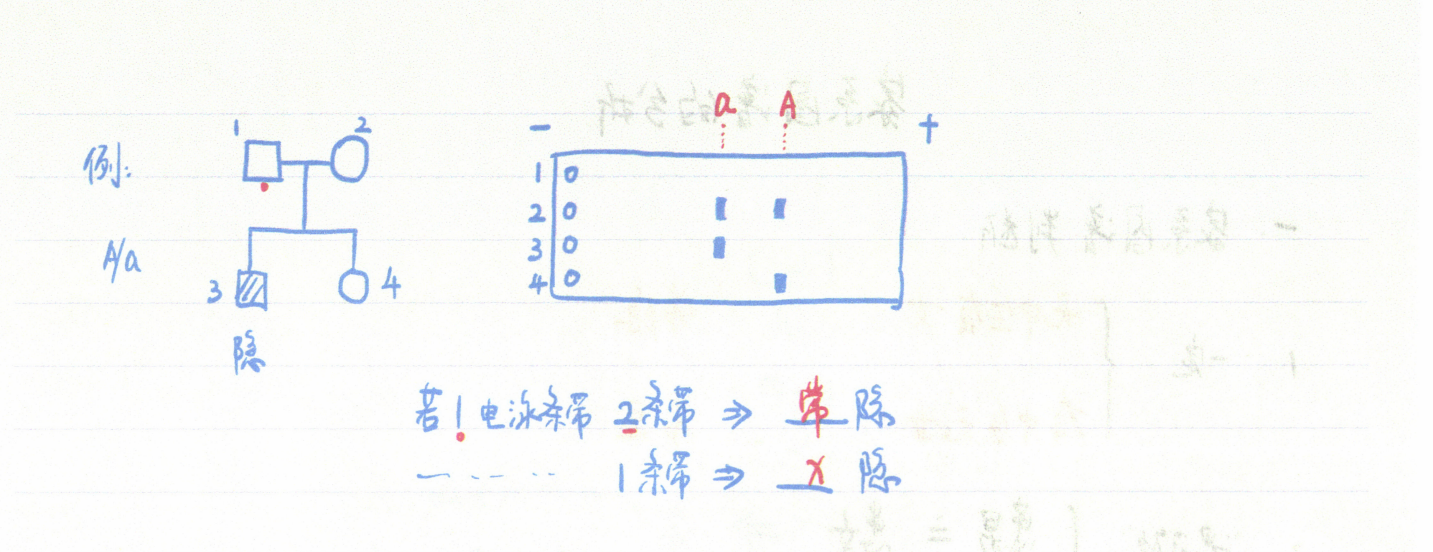 1 2 - a A +
例:
A/a
3 4
隐
1
2
3
4
若1电泳条带 2条带 ⇒ 常 隐
1条带 ⇒ X 隐